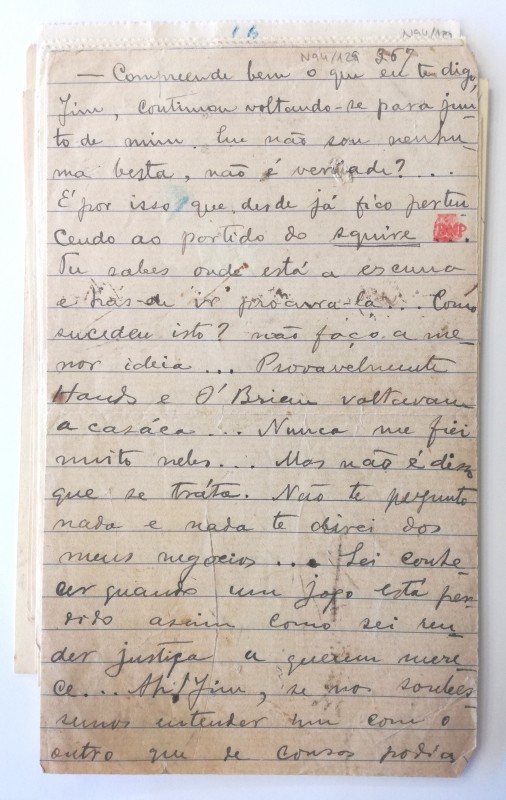 16 N94/129
N94/129 267
— Comprehende bem o que eu te digo,
Jim, continuou voltando-se para jun-
to de mim. Eu não sou nenhu-
ma besta, não é verdade? ...
É por isso que desde já fico perten-
cendo ao partido do squire BNP.
Tu sabes onde está a escuna
e has-de ir procura-la... Como
sucedeu isto? não faço a me-
nor ideia ... Provavelmente
Hands e O'Brien voltavam
a casáca... Nunca me fiei
muito neles... Mas não é disso
que se tráta. Não te pergunto
nada e nada te direi dos
meus negocios ... Sei conhe-
cer quando um jogo está per-
dido assim como sei ren-
der justiça a quem mere-
ce... Ah! Jim, se nos soubes-
semos entender um com o
outro que de cousas podia